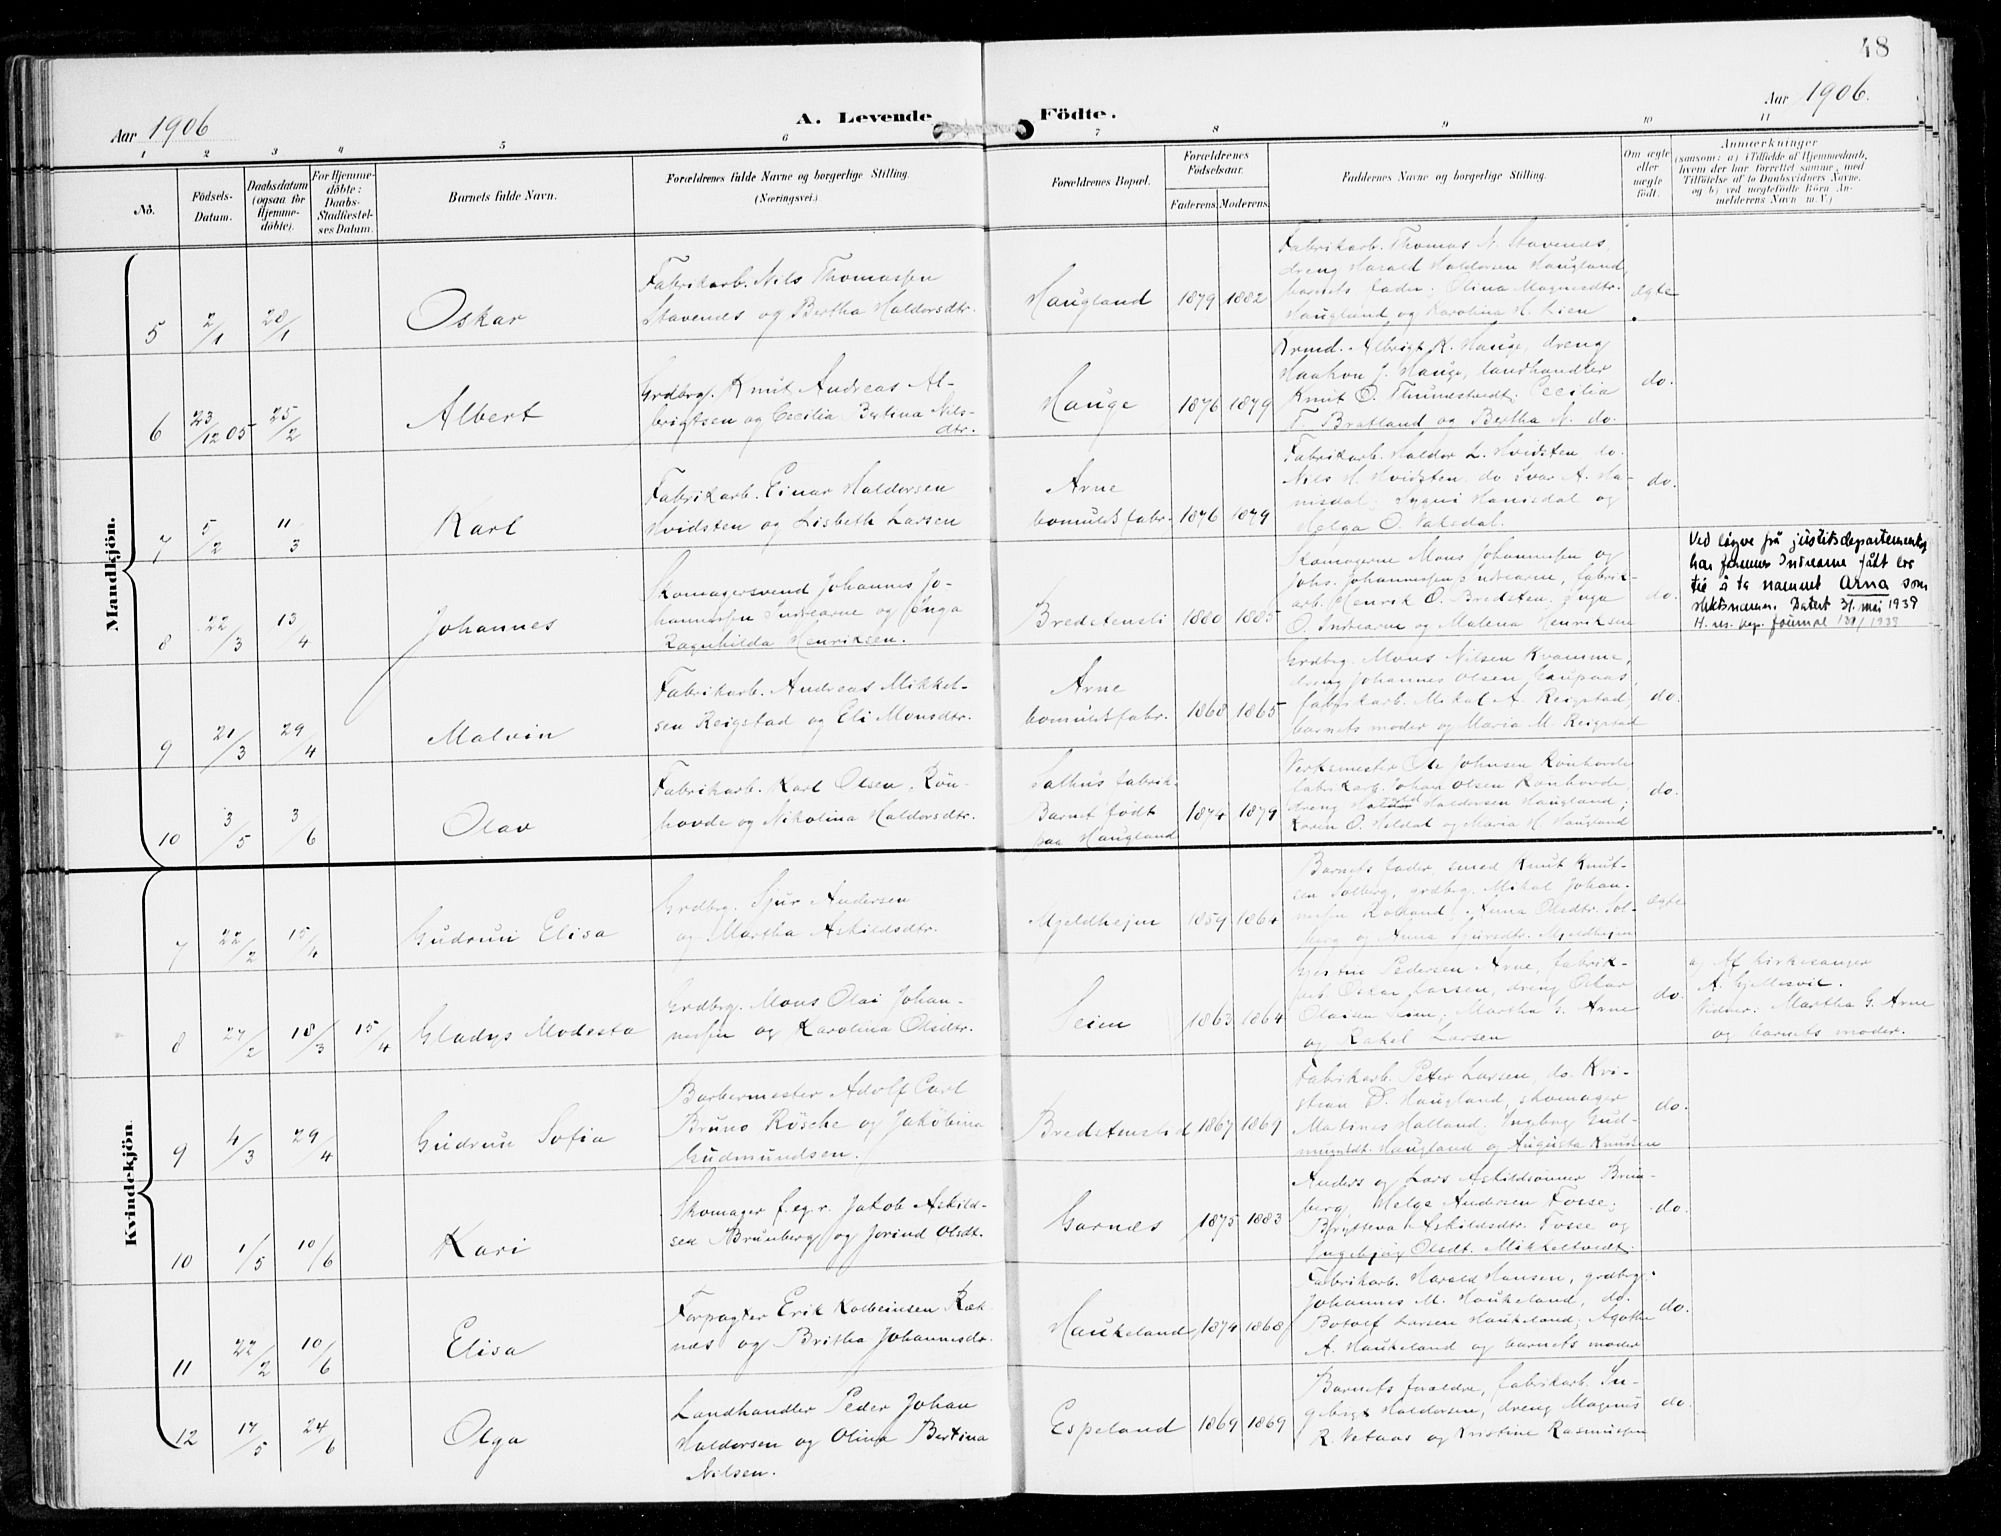 48
Aar 1906
A. Levende Födte.
Aar 1906.
1 2 3 4 5 6 7 8 9 10 11
No.
Födsels-Datum.
Daabsdatum (ogsaa for Hjemmedöbte).
For Hjemmedöbte: Daabs-Stadfæstelses Datum.
Barnets fulde Navn.
Forældrenes fulde Navne og borgerlige Stilling.
(Næringsvei.)
Forældrenes Bopæl.
Forældrenes Födselsaar.
Faderens. Moderens.
Faddernes Navne og borgerlige Stilling.
Om ægte eller uægte födt.
Anmærkninger
(saasom: a) i Tilfælde af Hjemmedaab,
hvem der har forrettet samme, med
Tilföielse af to Daabsvidners Navne,
og b) ved uegtefödte Börn Anmelderens Navn m.V.)
Mandkjön.
5 2/1 28/1 Oskar
Fabrikarb. Nils Thomassen
Stavenes og Bertha Haldorsdtr.
Haugland 1879 1882
Fabrikarb. Thomas N. Stavenes,
dreng Harald Haldorsen Haugland,
barnets fader. Olina Magnesdtr.
Haugland og Karolina H. Lien
ægte
6 23/12 05 25/2 Albert
Grdbrg. Knut Andreas Al-
brigtsen og Cecilia Bertina Nils-
dtr.
Hauge 1876 1879
Albrigt K. Hauge, dreng
Haakon J. Hauge, landhandler
Knut O. Thunestvedt; Cecilia
T. Bratland og Bertha N. do.
do.
7 5/2 11/3 Karl
Fabrikarb. Einar Haldorsen
Hvidsten og Lisbeth Larsen
Arne
bomuldsfabr. 1876 1879
Fabrikarb. Haldor L. Hvidsten do.
Nils H. Hvidsten. do Ivar A. Ha-
nisdal; Hanisdal og
Helga O. Valsdal.
do.
8 22/3 13/4 Johannes
Skomagersvend Johannes Jo-
hannessen Indrearne og Inga
Ragnhilda Henriksen.
Bredstensli 1880 1885
Skomagerne Mons Johannessen og
Johs. Johannessen Indrearne, fabrik-
arb. Henrik O. Bredsten. Inga
O. Indrearne og Malena Henriksen
do.
Ved løyve frå justitsdepartementet
har Johannes Indrearne fått lov
til å ta namnet Arna som
slektsnamn. Datert 31. mai 1939
9 21/3 29/4 Malvin
Fabrikarb. Andreas Mikkel-
sen Reigstad og Eli Monsdtr.
Arne
bomuldsfabr. 1868 1865
Grdbrg. Mons Nilsen Kvamme,
dreng Johannes Olsen Gaupaas,
fabrikarb. Mikal A. Reigstad;
barnets moder og Maria M. Reigstad
do.
10 3/5 3/6 Olav
Fabrikarb. Karl Olsen Rön-
hovde og Nikolina Haldorsdtr.
Salhus fabrik.
Barnet födt
paa Haugland 1874 1879
Verksmester Ole Johnsen Rönhovde
fabrikarb. Johan Olsen Rönhovde,
dreng Harald Haldorsen Haugland;
Karen O. Heldal og Maria H. Haugland
do.
Kvindekjön.
7 22/2 15/4 Gudrun Elisa
Grdbrg. Sjur Andersen
og Martha Askildsdtr.
Mjeldhejm 1859 1864
Barnets fader, smed Knut Knut-
sen Solberg, grdbrg. Mikal Johan-
nessen Rolland; Anna Olsdtr. Sol-
berg og Anna Sjursdtr. Mjeldhejm
ægte
8 27/2 18/3 15/4 Gladys Modesta
Grdbrg. Mons Olai Johan-
nessen og Karolina Olsdtr.
Seim 1863 1864
Gjertin Pedersen Arne, fabrik-
arb. Oskar Larsen, dreng Oskar
Olaisen Seim; Martha G. Arne
og Rakel Larsen
do.
a) Af kirkesanger
A. Gjellesvik.
Vidner: Martha G. Arne
og barnets moder.
9 4/3 29/4 Gudrun Sofia
Barbermester Adolf Carl
Bruno Rösche og Jakobina
Gudmundsen.
Bredstenslid 1867 1869
Fabrikarb. Peter Larsen, do. Kri-
stian D. Haugland, skomager
Matines Halland; Ingborg Gud-
mundsdt. Haugland og Augusta Knutsen
do.
10 1/5 10/6 Kari
Skomager f.eg.r. Jakob Askild-
sen Brunberg og Jorind Olsdt.
Garnæs 1875 1883
Anders og Lars Askildsönner Brun-
berg, Helge Andersen Fosse;
Brytteva Askildsdtr. Fosse og
Ingebjör Olsdt. Mikkeltvedt.
do.
11 22/2 10/6 Elisa
Forpagter Erik Kolbeinsen Ræk-
næs og Britha Johannesdtr.
Haukeland 1874 1868
Fabrikarb. Harald Hansen, grdbrg.
Johannes M. Haukeland, do.
Botolf Larsen Haukeland; Agathe
A. Haukeland og barnets moder
do.
12 17/5 24/6 Olga
Landhandler Peder Johan
Haldorsen og Olina Bertina
Nilsen.
Espeland 1869 1869
Barnets forældre, fabrikarb. In-
gebrigt Haldorsen, dreng Magnus
R. Vetaas og Kristine Rasmussen
do.